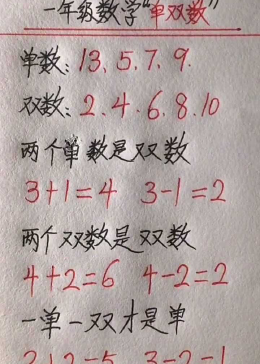 一年级数学“单双数”
单数：1、3、5、7、9.
双数：2、4、6、8、10
两个单数是双数
3+1=4 3-1=2
两个双数是双数
4+2=6 4-2=2
一单一双才是单
3+2=5 3-2=1